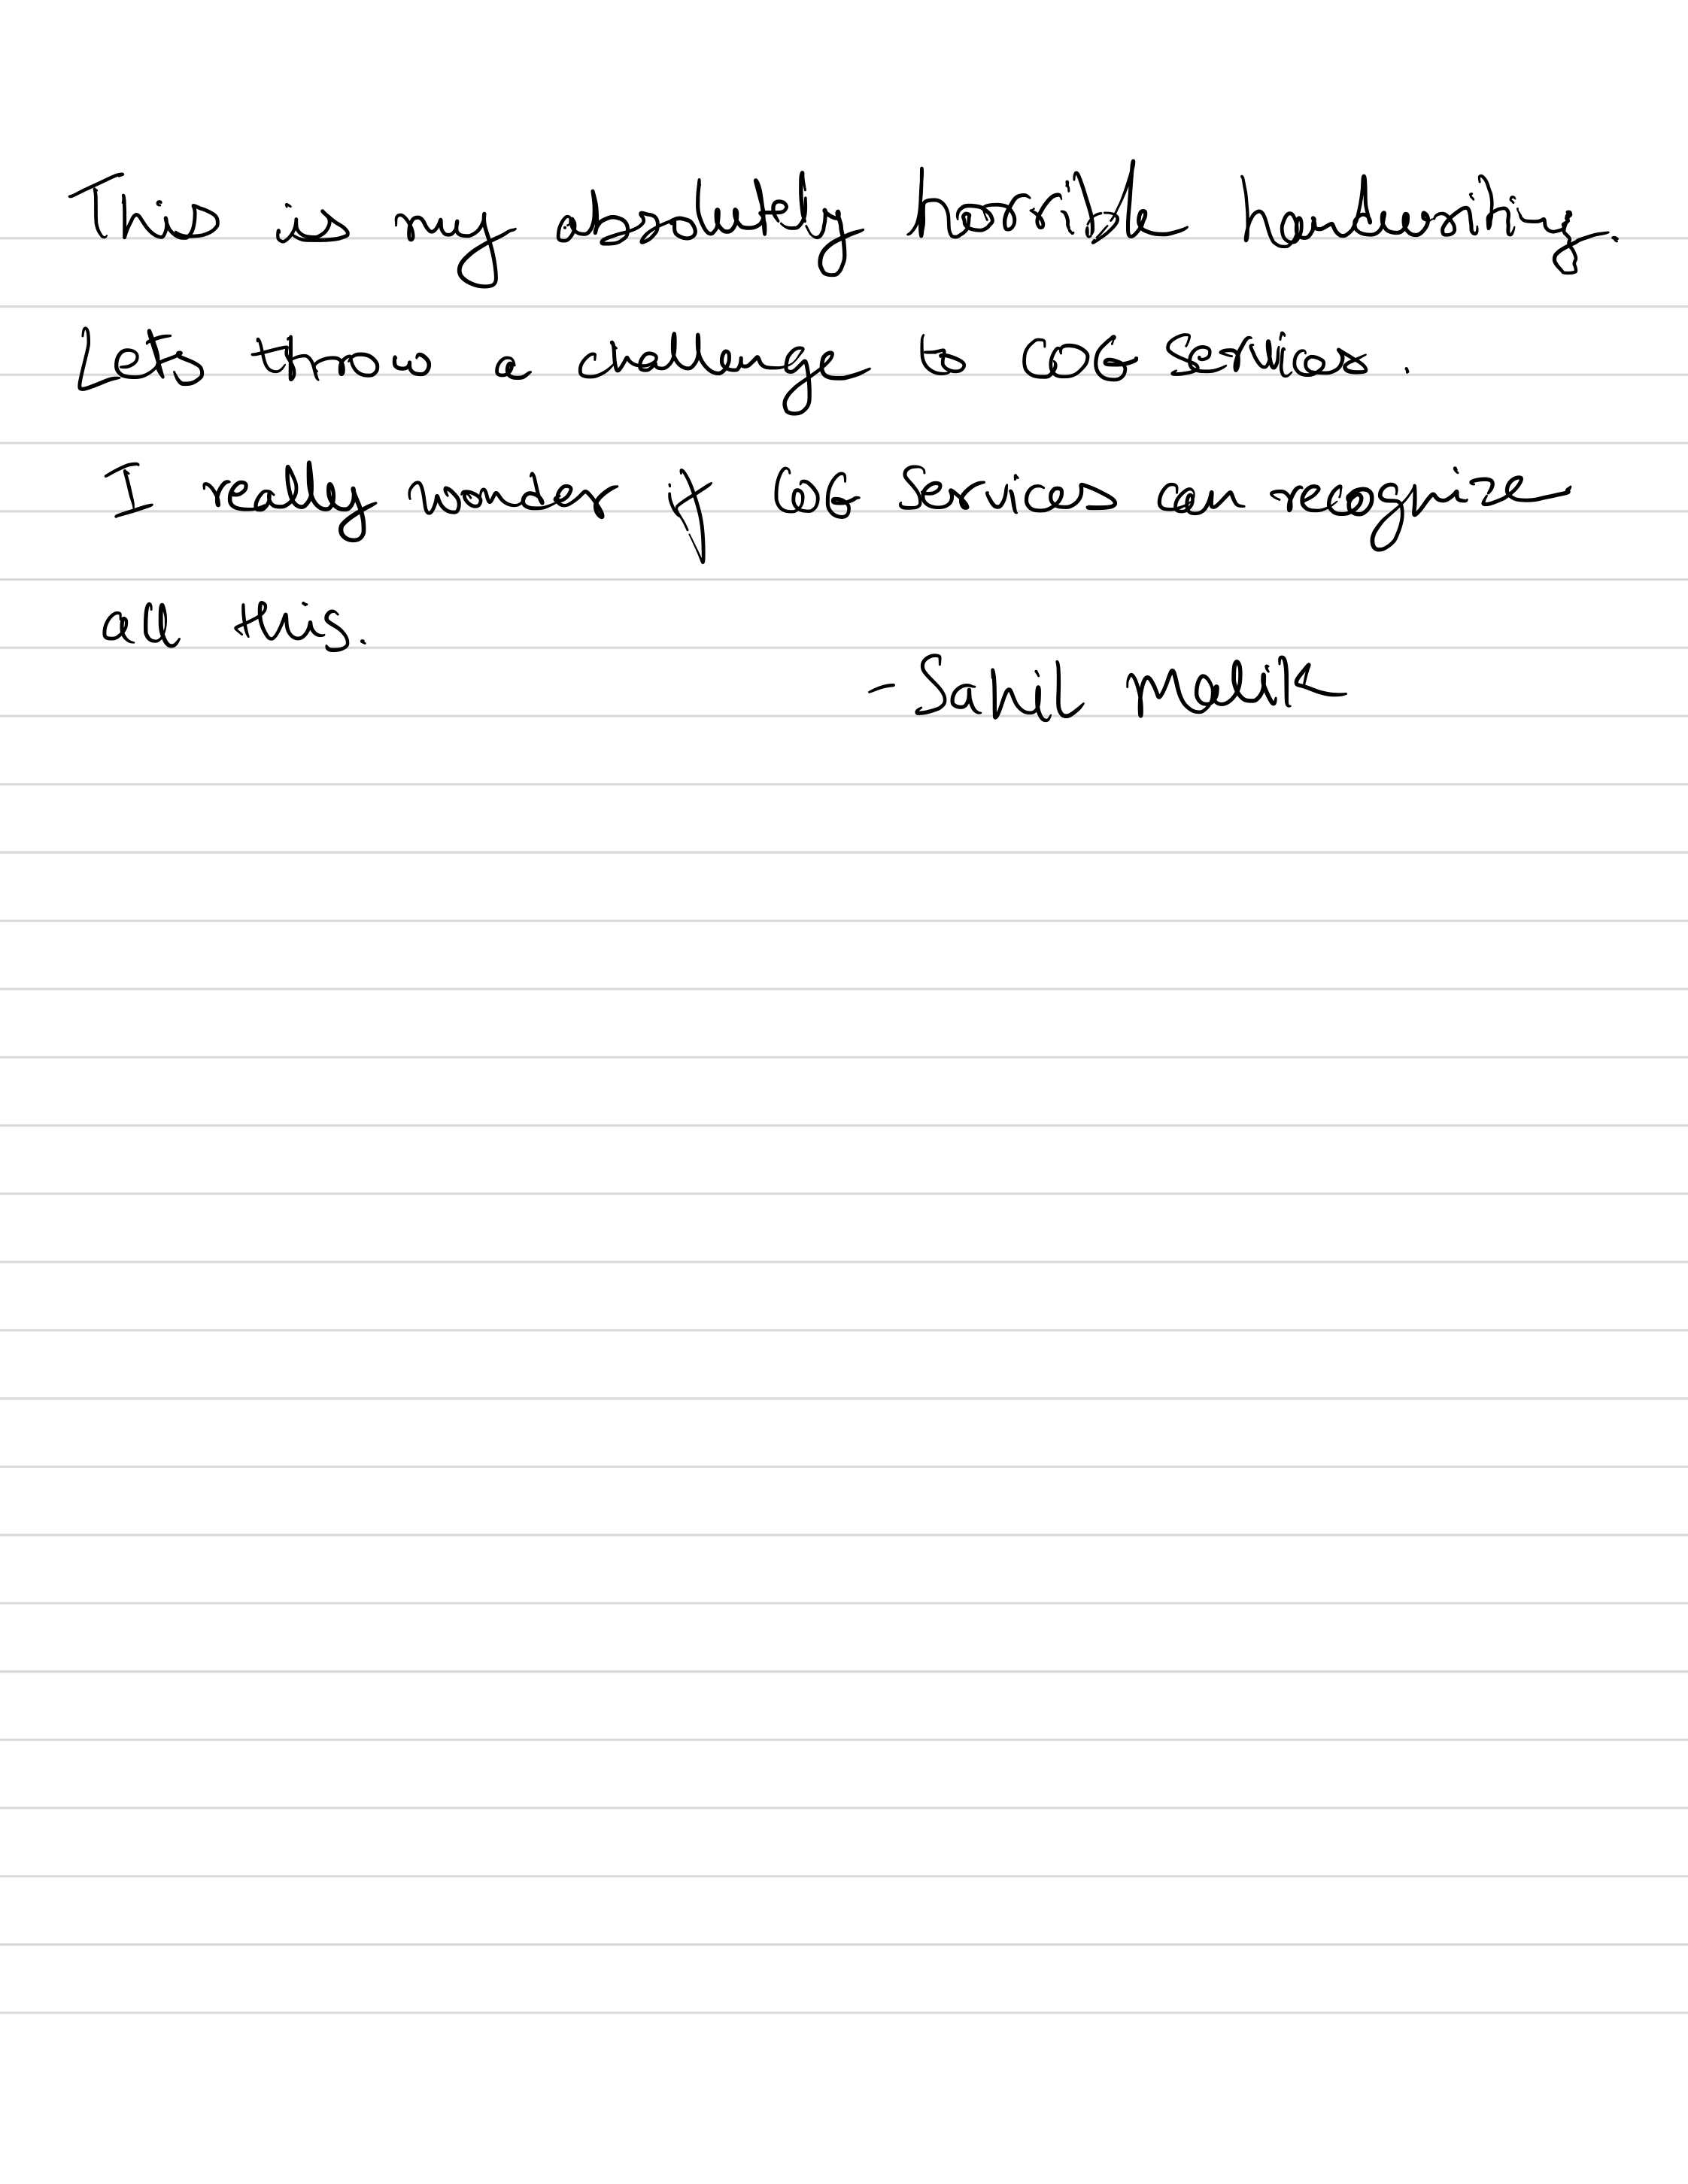 This is my absolutely horrible handwriting.
Lets throw a challenge to COG Services.
I really wonder if COG Services can recognize
all this.
- Sahil Malik